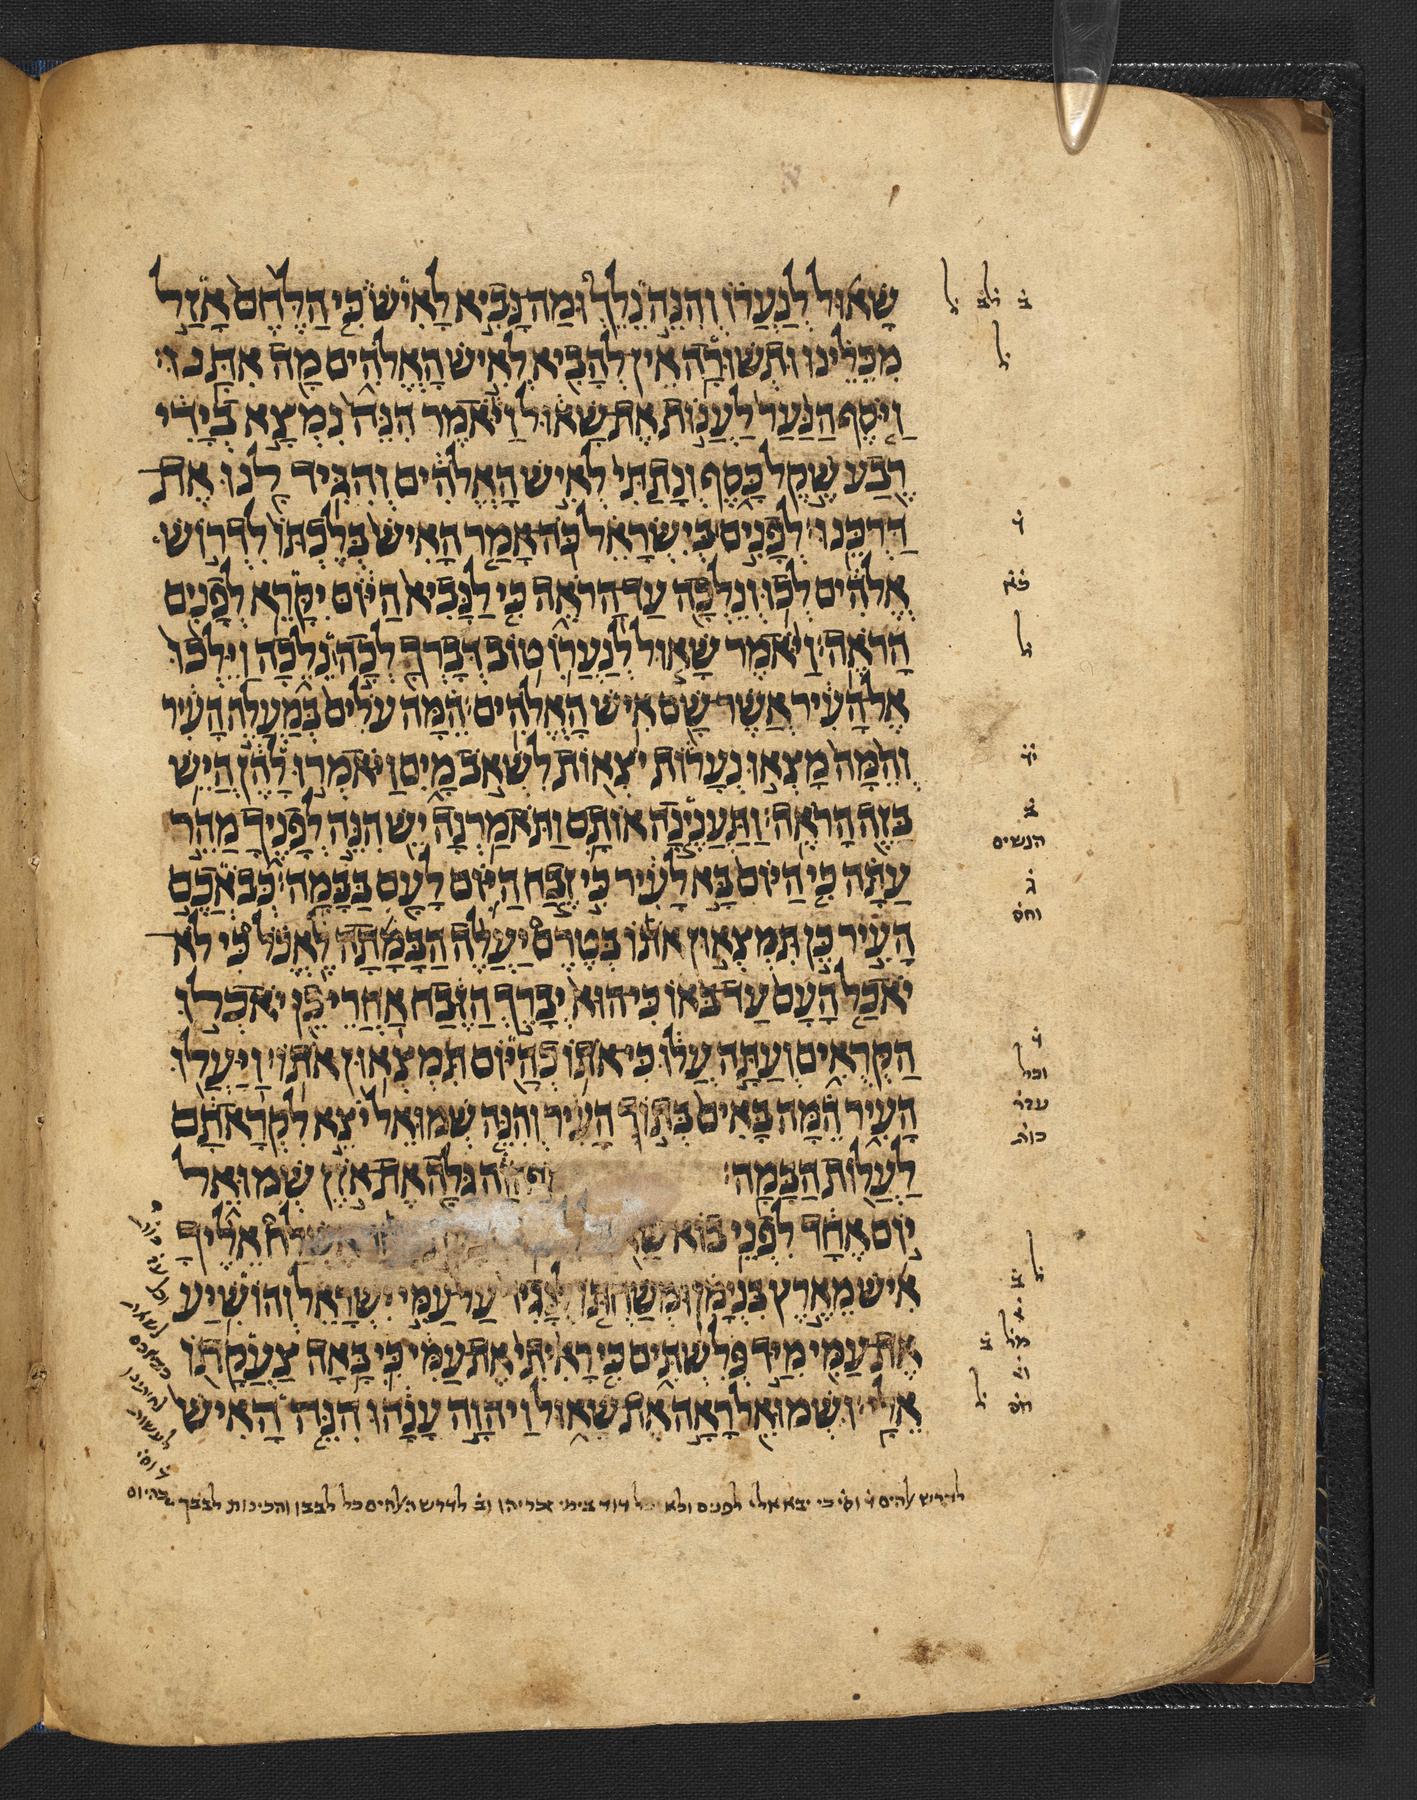 שָׁאוּל לְנַעֲרוֹ וְהִנֵּה נֵלֵךְ וּמַה נָּבִיא לָאִישׁ כִּי הַלֶּחֶם אָזַל
מִכֵּלֵינוּ וּתְשׁוּרָה אֵין לְהָבִיא לְאִישׁ הָאֱלֹהִים מָה אִתָּנוּ׃
וַיֹּסֶף הַנַּעַר לַעֲנוֹת אֶת שָׁאוּל וַיֹּאמֶר הִנֵּה נִמְצָא בְיָדִי
רֶבַע שֶׁקֶל כָּסֶף וְנָתַתִּי לְאִישׁ הָאֱלֹהִים וְהִגִּיד לָנוּ אֶת
דַּרְכֵּנוּ׃ לְפָנִים בְּיִשְׂרָאֵל כֹּה אָמַר הָאִישׁ בְּלֶכְתּוֹ לִדְרוֹשׁ
אֱלֹהִים לְכוּ וְנֵלְכָה עַד הָרֹאֶה כִּי לַנָּבִיא הַיּוֹם יִקָּרֵא לְפָנִים
הָרֹאֶה׃ וַיֹּאמֶר שָׁאוּל לְנַעֲרוֹ טוֹב דְּבָרְךָ לְכָה נֵלֵכָה וַיֵּלְכוּ
אֶל הָעִיר אֲשֶׁר שָׁם אִישׁ הָאֱלֹהִים׃ הֵמָּה עֹלִים בְּמַעֲלֵה הָעִיר
וְהֵמָּה מָצְאוּ נְעָרוֹת יֹצְאוֹת לִשְׁאֹב מָיִם וַיֹּאמְרוּ לָהֶן הֲיֵשׁ
בָּזֶה הָרֹאֶה׃ וַתַּעֲנֶינָה אוֹתָם וַתֹּאמַרְנָה יֵּשׁ הִנֵּה לְפָנֶיךָ מַהֵר
עַתָּה כִּי הַיּוֹם בָּא לָעִיר כִּי זֶבַח הַיּוֹם לָעָם בַּבָּמָה׃ כְּבֹאֲכֶם
הָעִיר כֵּן תִּמְצְאוּן אֹתוֹ בְּטֶרֶם יַעֲלֶה הַבָּמָתָה לֶאֱכֹל כִּי לֹא
יֹאכַל הָעָם עַד בֹּאוֹ כִּי הוּא יְבָרֵךְ הַזֶּבַח אַחֲרֵי כֵן יֹאכְלוּ
הַקְּרֻאִים וְעַתָּה עֲלוּ כִּי אֹתוֹ כְהַיּוֹם תִּמְצְאוּן אֹתוֹ׃ וַיַּעֲלוּ
הָעִיר הֵמָּה בָּאִים בְּתוֹךְ הָעִיר וְהִנֵּה שְׁמוּאֵל יֹצֵא לִקְרָאתָם
לַעֲלוֹת הַבָּמָה׃ גָּלָה אֶת אֹזֶן שְׁמוּאֵל
יוֹם אֶחָד לִפְנֵי בוֹא אֶשְׁלַח אֵלֶיךָ
אִישׁ מֵאֶרֶץ בִּנְיָמִן וּמְשַׁחְתּוֹ לְנָגִיד עַל עַמִּי יִשְׂרָאֵל וְהוֹשִׁיעַ
אֶת עַמִּי מִיַּד פְּלִשְׁתִּים כִּי רָאִיתִי אֶת עַמִּי כִּי בָּאָה צַעֲקָתוֹ
אֵלָי׃ וּשְׁמוּאֵל רָאָה אֶת שָׁאוּל וַיהוָה עָנָהוּ הִנֵּה הָאִישׁ
הנשים
וחס
וכל
לדרש האלהים כל לבבו והכינות לבבך